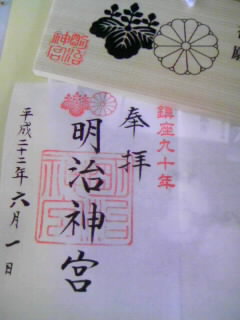 鎮座九十年
奉拝
明治神宮
平成二十二年六月一日